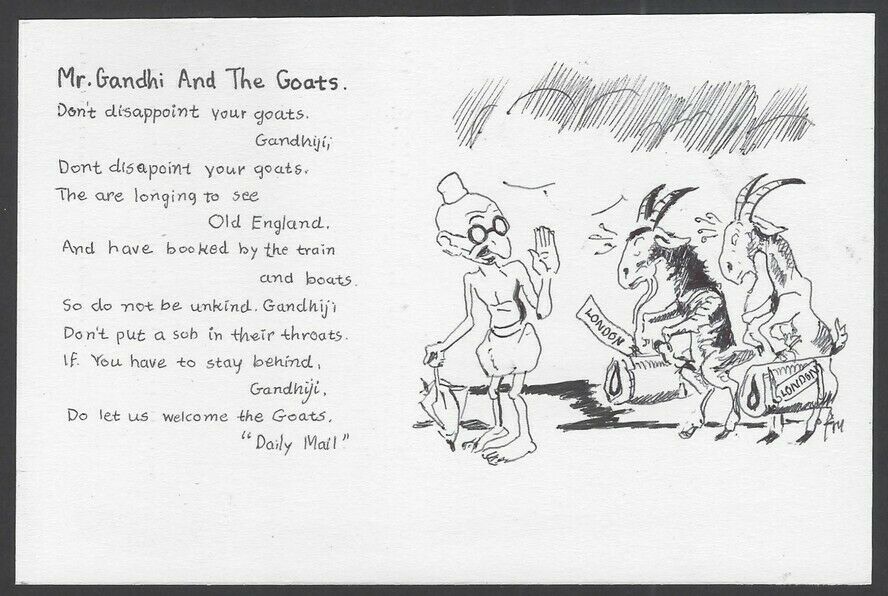 Mr. Gandhi And The Goats.
Don't disappoint your goats.
Gandhiji;
Dont disapoint your goats.
The are longing to see
Old England.
And have booked by the train
and boats.
So do not be unkind. Gandhiji
Don't put a sob in their throats.
If. You have to stay behind,
Gandhiji,
Do let us welcome the Goats.
"Daily Mail"
LONDON
LONDON